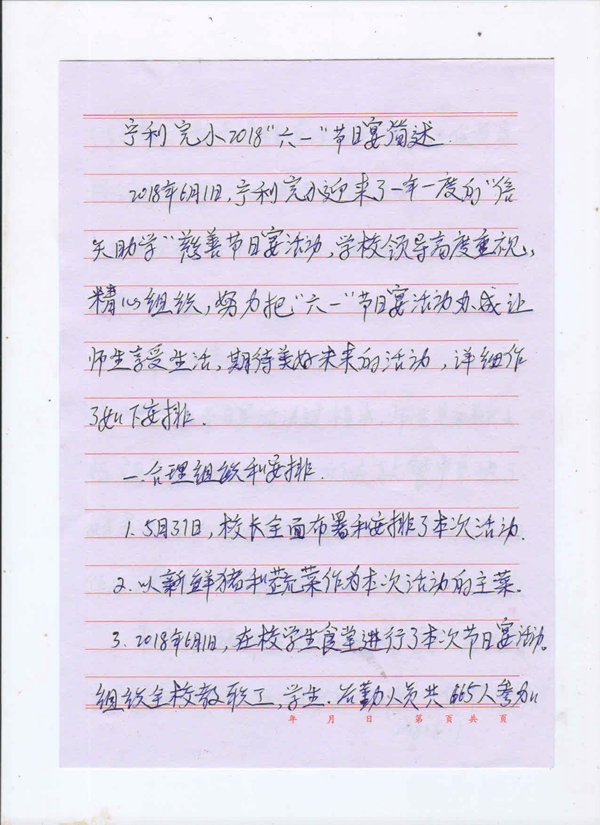 宁利完小2018"六一"节日宴简述.
2018年6月1日,宁利完小迎来了一年一度的"信
矢助学"慈善节日宴活动,学校领导高度重视,
精心组织,努力把"六一"节日宴活动办成让
师生享受生活,期待美好未来的活动,详细作
了如下安排.
一.合理组织和安排.
1.5月31日,校长全面布署和安排了本次活动.
2.以新鲜猪和蔬菜作为本次活动的主菜.
3.2018年6月1日,在校学生食堂进行了本次节日宴活动。
组织全校教职工,学生.后勤人员共665人参加
年 月 日 第 页 共 页